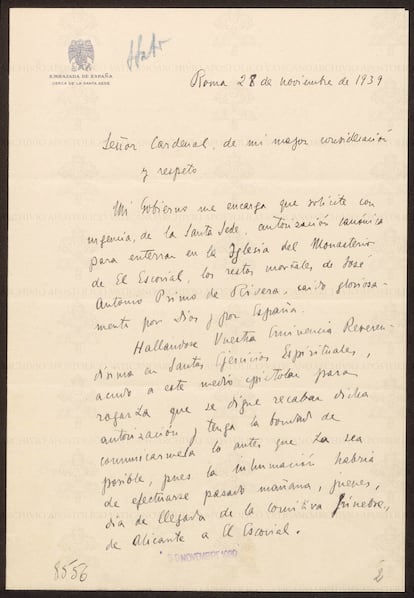 EMBAJADA DE ESPAÑA
CERCA DE LA SANTA SEDE
Roma 28 de noviembre de 1939
Señor Cardenal, de mi mayor consideración
y respeto
Mi Gobierno me encarga que solicite con
urgencia, de la Santa Sede, autorización canónica
para enterrar en la Iglesia del Monasterio
de El Escorial, los restos mortales de José
Antonio Primo de Rivera, caído gloriosa-
mente por Dios y por España.
Hallandose Vuestra Eminencia Reveren-
dísima en Santos Ejercicios Espirituales,
acudo a este medio epistolar para
rogarla que se digne recabar dicha
autorización y tenga la bondad de
comunicarmela lo antes que La sea
posible, pues la inhumación habría
de efectuarse pasado mañana, jueves,
día de llegada de la comitiva fúnebre,
de Alicante a El Escorial.
8556
2